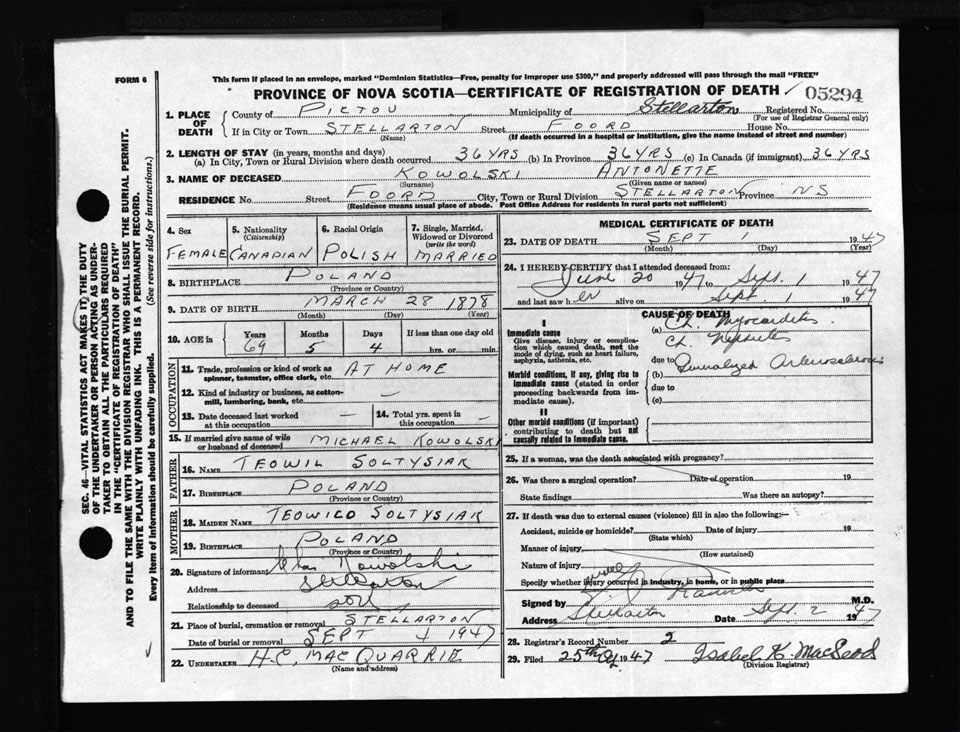 This form if placed in an envelope, marked "Dominion Statistics—Free, penalty for improper use $300," and properly addressed will pass through the mail "FREE"
FORM 6
PROVINCE OF NOVA SCOTIA—CERTIFICATE OF REGISTRATION OF DEATH 05294
1. PLACE OF DEATH
County of PICTOU Municipality of Stellarton Registered No.
(For use of Registrar General only)
If in City or Town STELLARTON Street FOORD House No.
(Name) (If death occurred in a hospital or institution, give the name instead of street and number)
2. LENGTH OF STAY (in years, months and days)
(a) In City, Town or Rural Division where death occurred 36 YRS (b) In Province 36 YRS (c) In Canada (if immigrant) 36 YRS
3. NAME OF DECEASED KOWOLSKI ANTONETTE
(Surname) (Given name or names)
RESIDENCE No. Street FOORD City, Town or Rural Division STELLARTON Province NS
(Residence means usual place of abode. Post Office Address for residents in rural parts not sufficient)
SEC. 46—VITAL STATISTICS ACT MAKES IT THE DUTY
OF THE UNDERTAKER OR PERSON ACTING AS UNDER-
TAKER TO OBTAIN ALL THE PARTICULARS REQUIRED
IN THE "CERTIFICATE OF REGISTRATION OF DEATH"
AND TO FILE THE SAME WITH THE DIVISION REGISTRAR WHO SHALL ISSUE THE BURIAL PERMIT.
WRITE PLAINLY WITH UNFADING INK. THIS IS A PERMANENT RECORD.
Every item of information should be carefully supplied. (See reverse side for instructions.)
4. Sex 5. Nationality (Citizenship) 6. Racial Origin 7. Single, Married, Widowed or Divorced (write the word)
FEMALE CANADIAN POLISH MARRIED
8. BIRTHPLACE POLAND
(Province or Country)
9. DATE OF BIRTH MARCH 28 1878
(Month) (Day) (Year)
10. AGE in Years Months Days If less than one day old
69 5 4 hrs. or min.
OCCUPATION
11. Trade, profession or kind of work as spinner, teamster, office clerk, etc. AT HOME
12. Kind of industry or business, as cotton-mill, lumbering, bank, etc. —
13. Date deceased last worked at this occupation — 14. Total yrs. spent in this occupation —
15. If married give name of wife or husband of deceased MICHAEL KOWOLSKI
FATHER
16. NAME TEOWIL SOLTYSIAK
17. BIRTHPLACE POLAND
(Province or Country)
MOTHER
18. MAIDEN NAME TEOWILO SOLTYSIAK
19. BIRTHPLACE POLAND
(Province or Country)
20. Signature of informant Chas Kowolski
Address Stellarton
Relationship to deceased son
21. Place of burial, cremation or removal STELLARTON
Date of burial or removal SEPT 4 1947
22. UNDERTAKER H.C. MACQUARRIE
(Name and address)
MEDICAL CERTIFICATE OF DEATH
23. DATE OF DEATH SEPT 1 1947
(Month) (Day) (Year)
24. I HEREBY CERTIFY that I attended deceased from:
June 20 1947 to Sept. 1 1947
and last saw her alive on Sept. 1 1947
CAUSE OF DEATH
I
Immediate cause
Give disease, injury or complication which caused death, not the mode of dying, such as heart failure, asphyxia, asthenia, etc.
(a) Ch. Myocarditis
Ch. Nephritis
due to
Morbid conditions, if any, giving rise to immediate cause (stated in order proceeding backwards from immediate cause).
(b) Generalized Arteriosclerosis
due to
(c)
II
Other morbid conditions (if important) contributing to death but not causally related to immediate cause.
25. If a woman, was the death associated with pregnancy?
26. Was there a surgical operation? Date of operation 19
State findings Was there an autopsy?
27. If death was due to external causes (violence) fill in also the following:—
Accident, suicide or homicide? Date of injury 19
(State which)
Manner of injury
(How sustained)
Nature of injury
Specify whether injury occurred in industry, in home, or in public place
Signed by M.D.
Address Stellarton Date Sept. 2 1947
28. Registrar's Record Number 2
29. Filed 25th 1947 Isabel K. MacLeod
(Division Registrar)